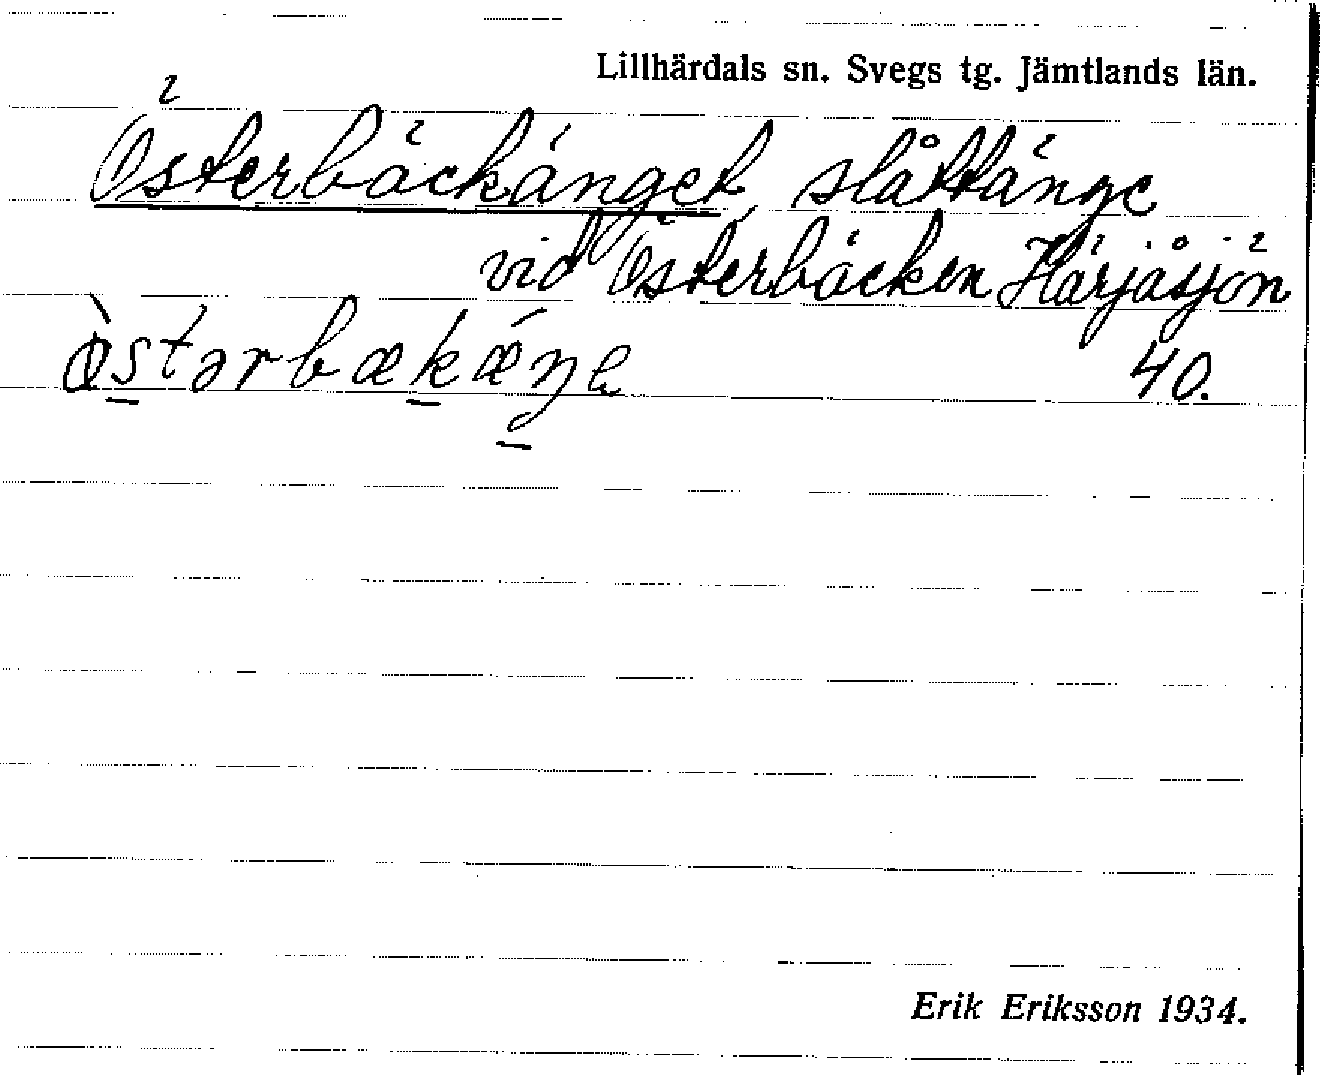 Lillhärdals sn. Svegs tg. Jämtlands län.
Österbäckänget, slåttänge
vid Österbäcken Härjåsjön
ò̱stərbæḵǽŋ̱e
40.
Erik Eriksson 1934.